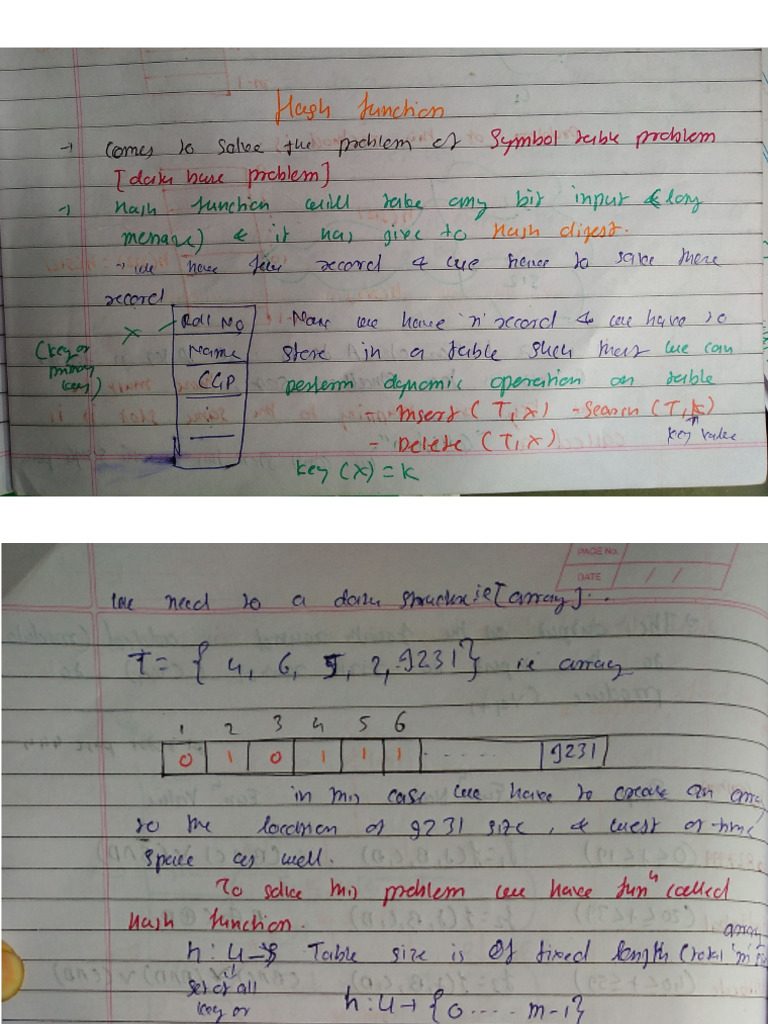 Hash function
→ Comes to solve the problem of Symbol table problem
[data base problem]
→ Hash function will take any bit input & (long
message) & it has give to Hash digest.
→ we have few record & we hence to sake there
record
Roll No
Name
CGP
X
(key or
primary
key)
Now we have 'n' record & we have to
store in a table such that we can
perform dynamic operation on table
- Insert (T, x) - Search (T, k)
- Delete (T, x)
key value
key (x) = k
PAGE No.
DATE / /
we need to a data structure ie [array]...
T = { 4, 6, 5, 2, 9231} ie array
1 2 3 4 5 6
0 1 0 1 1 1 ...... 9231
in this case we have to create an array
to the location of 9231 size, & west of time
space as well.
To solve this problem we have funⁿ called
Hash function.
h : U → S Table size is of fixed length (total 'm'
array
set of all
key or
h : U → {0 .... m-1}